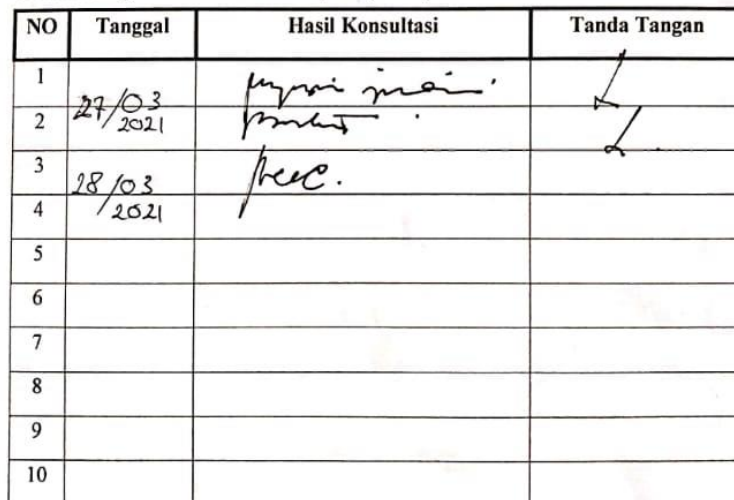 NO Tanggal Hasil Konsultasi Tanda Tangan
1
27/03
2021
2
3
28/03
2021
4
5
6
7
8
9
10